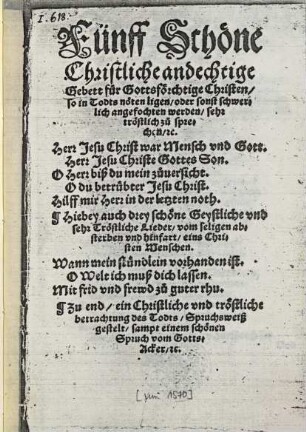 I. 618.
Fünff Schöne
Christliche andechtige
Gebett für Gottsförchtige Christen/
so in Todts nöten ligen/ oder sonst schwer⸗
lich angefochten werden/ sehr
tröstlich zů spre⸗
chen/ ꝛc.
Herr Jesu Christ war Mensch vnd Gott.
Herr Jesu Christe Gottes Son.
O Herr biß du mein zůuersicht.
O du betrübter Jesu Christ.
Hilff mir Herr in der letzten noth.
¶ Hiebey auch drey schöne Geystliche vnd
sehr Tröstliche Lieder/ vom seligen ab⸗
sterben vnd hinfart/ eins Chri⸗
sten Menschen.
Wann mein stündlein vorhanden ist.
O Welt ich muß dich lassen.
Mit frid vnd frewd zů guter rhu.
¶ Zu end/ ein Christliche vnd tröstliche
betrachtung des Todts/ Spruchsweiß
gestelt/ sampt einem schönen
Spruch vom Gotts⸗
Acker/ ꝛc.
1570]